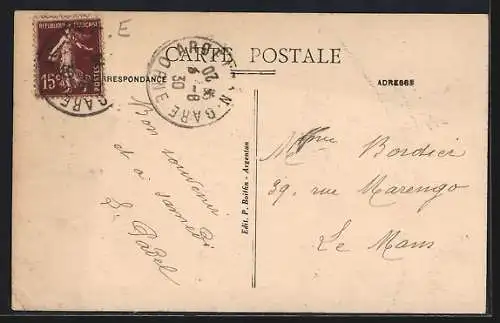 E
REPUBLIQUE FRANÇAISE
15c
POSTES
CARTE POSTALE
RRESPONDANCE
ADRESSE
GARE
ORNE
20
4-8
30
Bon souvenir
et à samedi
Edit. P. Boitfin - Argentan
Mme Bordier
39, rue Marengo
Le Mans